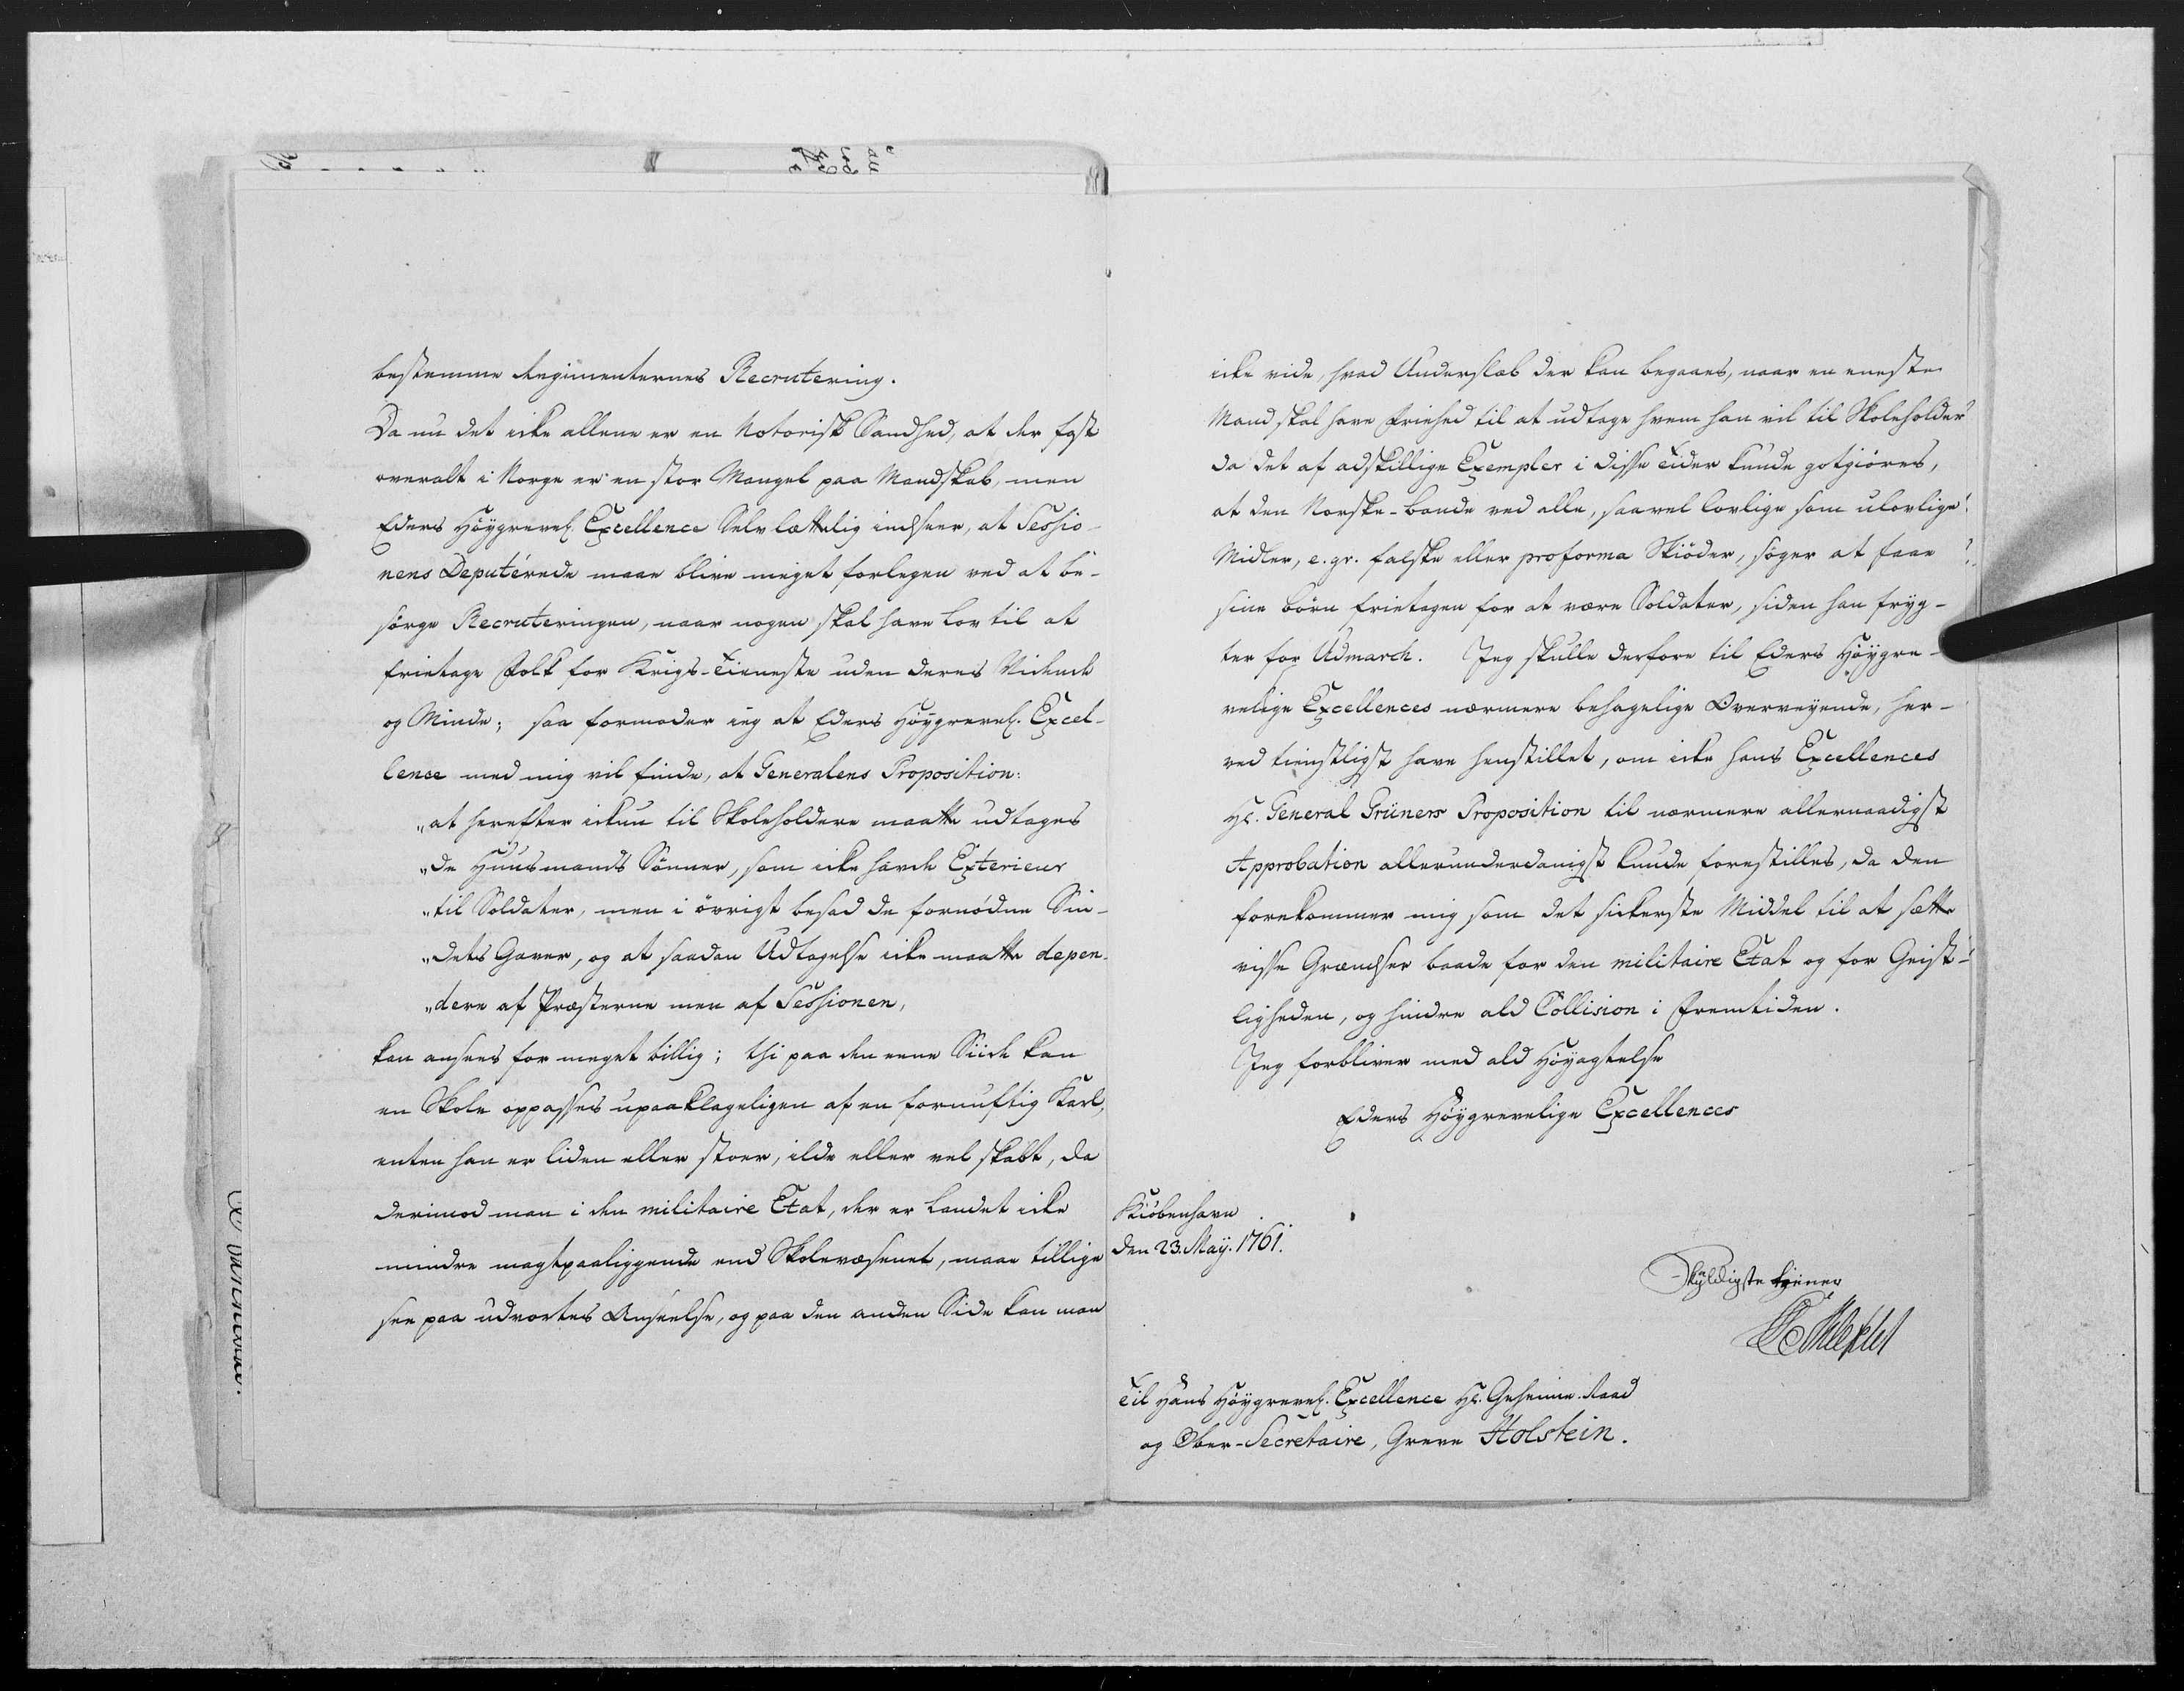 bestemme Regimenternes Recrutering.
Da nu det icke allene er en Notorisk Sandhed, at der fast
overalt i Norge er en stor Mangel paa Mandskab, men
Eders Höygrevel. Excellence Selv lættelig indseer, at Sessio-
nens Deputérede maae blive meget forlegen ved at be-
sörge Recruteringen, naar nogen skal have Lov til at
frietage Folk for Krigs-Tieneste uden deres Vidende
og Minde; saa formoder ieg at Eders Höygrevel. Excel-
lence med mig vil finde, at Generalens Proposition:
"at herefter ickun til Skoleholdere maatte udtages
"de Huusmands Sönner, som icke havde Exterieur
"til Soldater, men i övrigt besad de fornödne Sin-
"dets Gaver, og at saadan Udtagelse icke maatte depen-
"dere af Præsterne men af Sessionen,
kan ansees for meget billig; thi paa den eene Siide kan
en Skole oppasses upaaklageligen af en fornuftig Karl,
enten han er liden eller stoer, ilde eller vel skabt, da
derimod man i den militaire Etat, der er Landet icke
mindre magtpaaliggende end Skolevæsenet, maae tillige
see paa udvortes Anseelse, og paa den anden Side kan man
icke vide, hvad Underslæb der kan begaaes, naar en eneste
Mand skal have Friehed til at udtage hvem han vil til Skoleholder
da det af adskillige Exempler i disse Tider kunde gotgiöres,
at den Norske-Bonde ved alle, saavel lovlige som ulovlige
Midler, e. gr. falske eller proforma Skiöder, söger at faae
sine Börn frietagen for at være Soldater, siden han fryg-
ter for Udmarch. Jeg skulle derfore til Eders Höygre-
velige Excellences nærmere behagelige Overveyende, her-
ved tienstligst have henstillet, om icke hans Excellences
Hr. General Grüners Proposition til nærmere allernaadigst
Approbation allerunderdanigst kunde forestilles, da den
forekommer mig som det sickerste Middel til at sætte
visse Grændser baade for den militaire Etat og for Geist-
ligheden, og hindre ald Collision i Fremtiden.
Jeg forbliver med ald Höyagtelse
Eders Höygrevelige Excellences
Kiöbenhavn
den 23. Maÿ. 1761.
Skyldigste tiener
Til Hans Höygrevel. Excellence Hr. Geheime-Raad
og Ober-Secretaire, Greve Holstein.